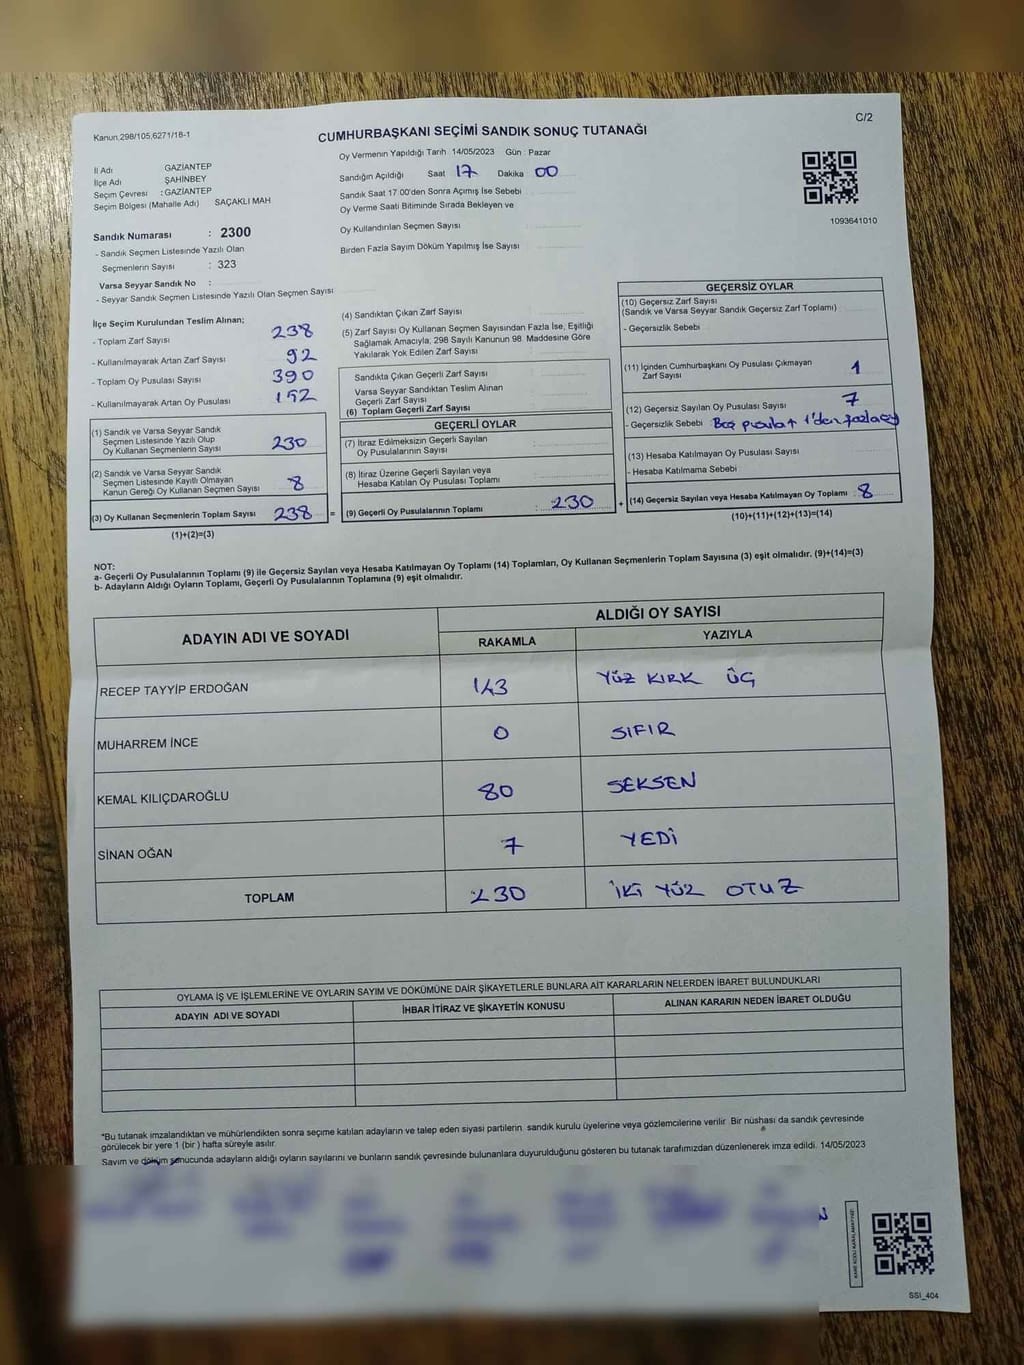 Kanun,298/105,6271/16-1
CUMHURBAŞKANI SEÇİMİ SANDIK SONUÇ TUTANAĞI
C/2
İl Adı GAZİANTEP
İlçe Adı ŞAHİNBEY
Seçim Çevresi : GAZİANTEP
Seçim Bölgesi (Mahalle Adı) SAÇAKLI MAH
Oy Vermenin Yapıldığı Tarih 14/05/2023 Gün : Pazar
Sandığın Açıldığı Saat 17 Dakika 00
Sandık Saat 17.00'den Sonra Açımış İse Sebebi
Oy Verme Saati Bitiminde Sırada Bekleyen ve
Oy Kullandırılan Seçmen Sayısı
Birden Fazla Sayım Döküm Yapılmış İse Sayısı
1093641010
Sandık Numarası : 2300
- Sandık Seçmen Listesinde Yazılı Olan
Seçmenlerin Sayısı : 323
Varsa Seyyar Sandık No :
- Seyyar Sandık Seçmen Listesinde Yazılı Olan Seçmen Sayısı
İlçe Seçim Kurulundan Teslim Alınan;
- Toplam Zarf Sayısı 238
- Kullanılmayarak Artan Zarf Sayısı 92
- Toplam Oy Pusulası Sayısı 390
- Kullanılmayarak Artan Oy Pusulası 152
(1) Sandık ve Varsa Seyyar Sandık
Seçmen Listesinde Yazılı Olup
Oy Kullanan Seçmenlerin Sayısı 230
(2) Sandık ve Varsa Seyyar Sandık
Seçmen Listesinde Kayıtlı Olmayan
Kanun Gereği Oy Kullanan Seçmen Sayısı 8
(3) Oy Kullanan Seçmenlerin Toplam Sayısı 238 =
(1)+(2)=(3)
(4) Sandıktan Çıkan Zarf Sayısı
(5) Zarf Sayısı Oy Kullanan Seçmen Sayısından Fazla İse, Eşitliği
Sağlamak Amacıyla; 298 Sayılı Kanunun 98. Maddesine Göre
Yakılarak Yok Edilen Zarf Sayısı
Sandıkta Çıkan Geçerli Zarf Sayısı
Varsa Seyyar Sandıktan Teslim Alınan
Geçerli Zarf Sayısı
(6) Toplam Geçerli Zarf Sayısı
GEÇERLİ OYLAR
(7) İtiraz Edilmeksizin Geçerli Sayılan
Oy Pusulalarının Sayısı
(8) İtiraz Üzerine Geçerli Sayılan veya
Hesaba Katılan Oy Pusulası Toplamı
(9) Geçerli Oy Pusulalarının Toplamı : 230 +
GEÇERSİZ OYLAR
(10) Geçersiz Zarf Sayısı
(Sandık ve Varsa Seyyar Sandık Geçersiz Zarf Toplamı)
- Geçersizlik Sebebi
(11) İçinden Cumhurbaşkanı Oy Pusulası Çıkmayan
Zarf Sayısı 1
(12) Geçersiz Sayılan Oy Pusulası Sayısı 7
- Geçersizlik Sebebi Boş pusula + 1'den fazla oy
(13) Hesaba Katılmayan Oy Pusulası Sayısı
- Hesaba Katılmama Sebebi
(14) Geçersiz Sayılan veya Hesaba Katılmayan Oy Toplamı : 8
(10)+(11)+(12)+(13)=(14)
NOT:
a- Geçerli Oy Pusulalarının Toplamı (9) ile Geçersiz Sayılan veya Hesaba Katılmayan Oy Toplamı (14) Toplamları, Oy Kullanan Seçmenlerin Toplam Sayısına (3) eşit olmalıdır. (9)+(14)=(3)
b- Adayların Aldığı Oyların Toplamı, Geçerli Oy Pusulalarının Toplamına (9) eşit olmalıdır.
ADAYIN ADI VE SOYADI ALDIĞI OY SAYISI
RAKAMLA YAZIYLA
RECEP TAYYİP ERDOĞAN 143 YÜZ KIRK ÜÇ
MUHARREM İNCE 0 SIFIR
KEMAL KILIÇDAROĞLU 80 SEKSEN
SİNAN OĞAN 7 YEDİ
TOPLAM 230 İKİ YÜZ OTUZ
OYLAMA İŞ VE İŞLEMLERİNE VE OYLARIN SAYIM VE DÖKÜMÜNE DAİR ŞİKAYETLERLE BUNLARA AİT KARARLARIN NELERDEN İBARET BULUNDUKLARI
ADAYIN ADI VE SOYADI İHBAR İTİRAZ VE ŞİKAYETİN KONUSU ALINAN KARARIN NEDEN İBARET OLDUĞU
*Bu tutanak imzalandıktan ve mühürlendikten sonra seçime katılan adayların ve talep eden siyasi partilerin, sandık kurulu üyelerine veya gözlemcilerine verilir. Bir nüshası da sandık çevresinde
görülecek bir yere 1 (bir ) hafta süreyle asılır.
Sayım ve döküm sonucunda adayların aldığı oyların sayılarını ve bunların sandık çevresinde bulunanlara duyurulduğunu gösteren bu tutanak tarafımızdan düzenlenerek imza edildi. 14/05/2023
SSI_404